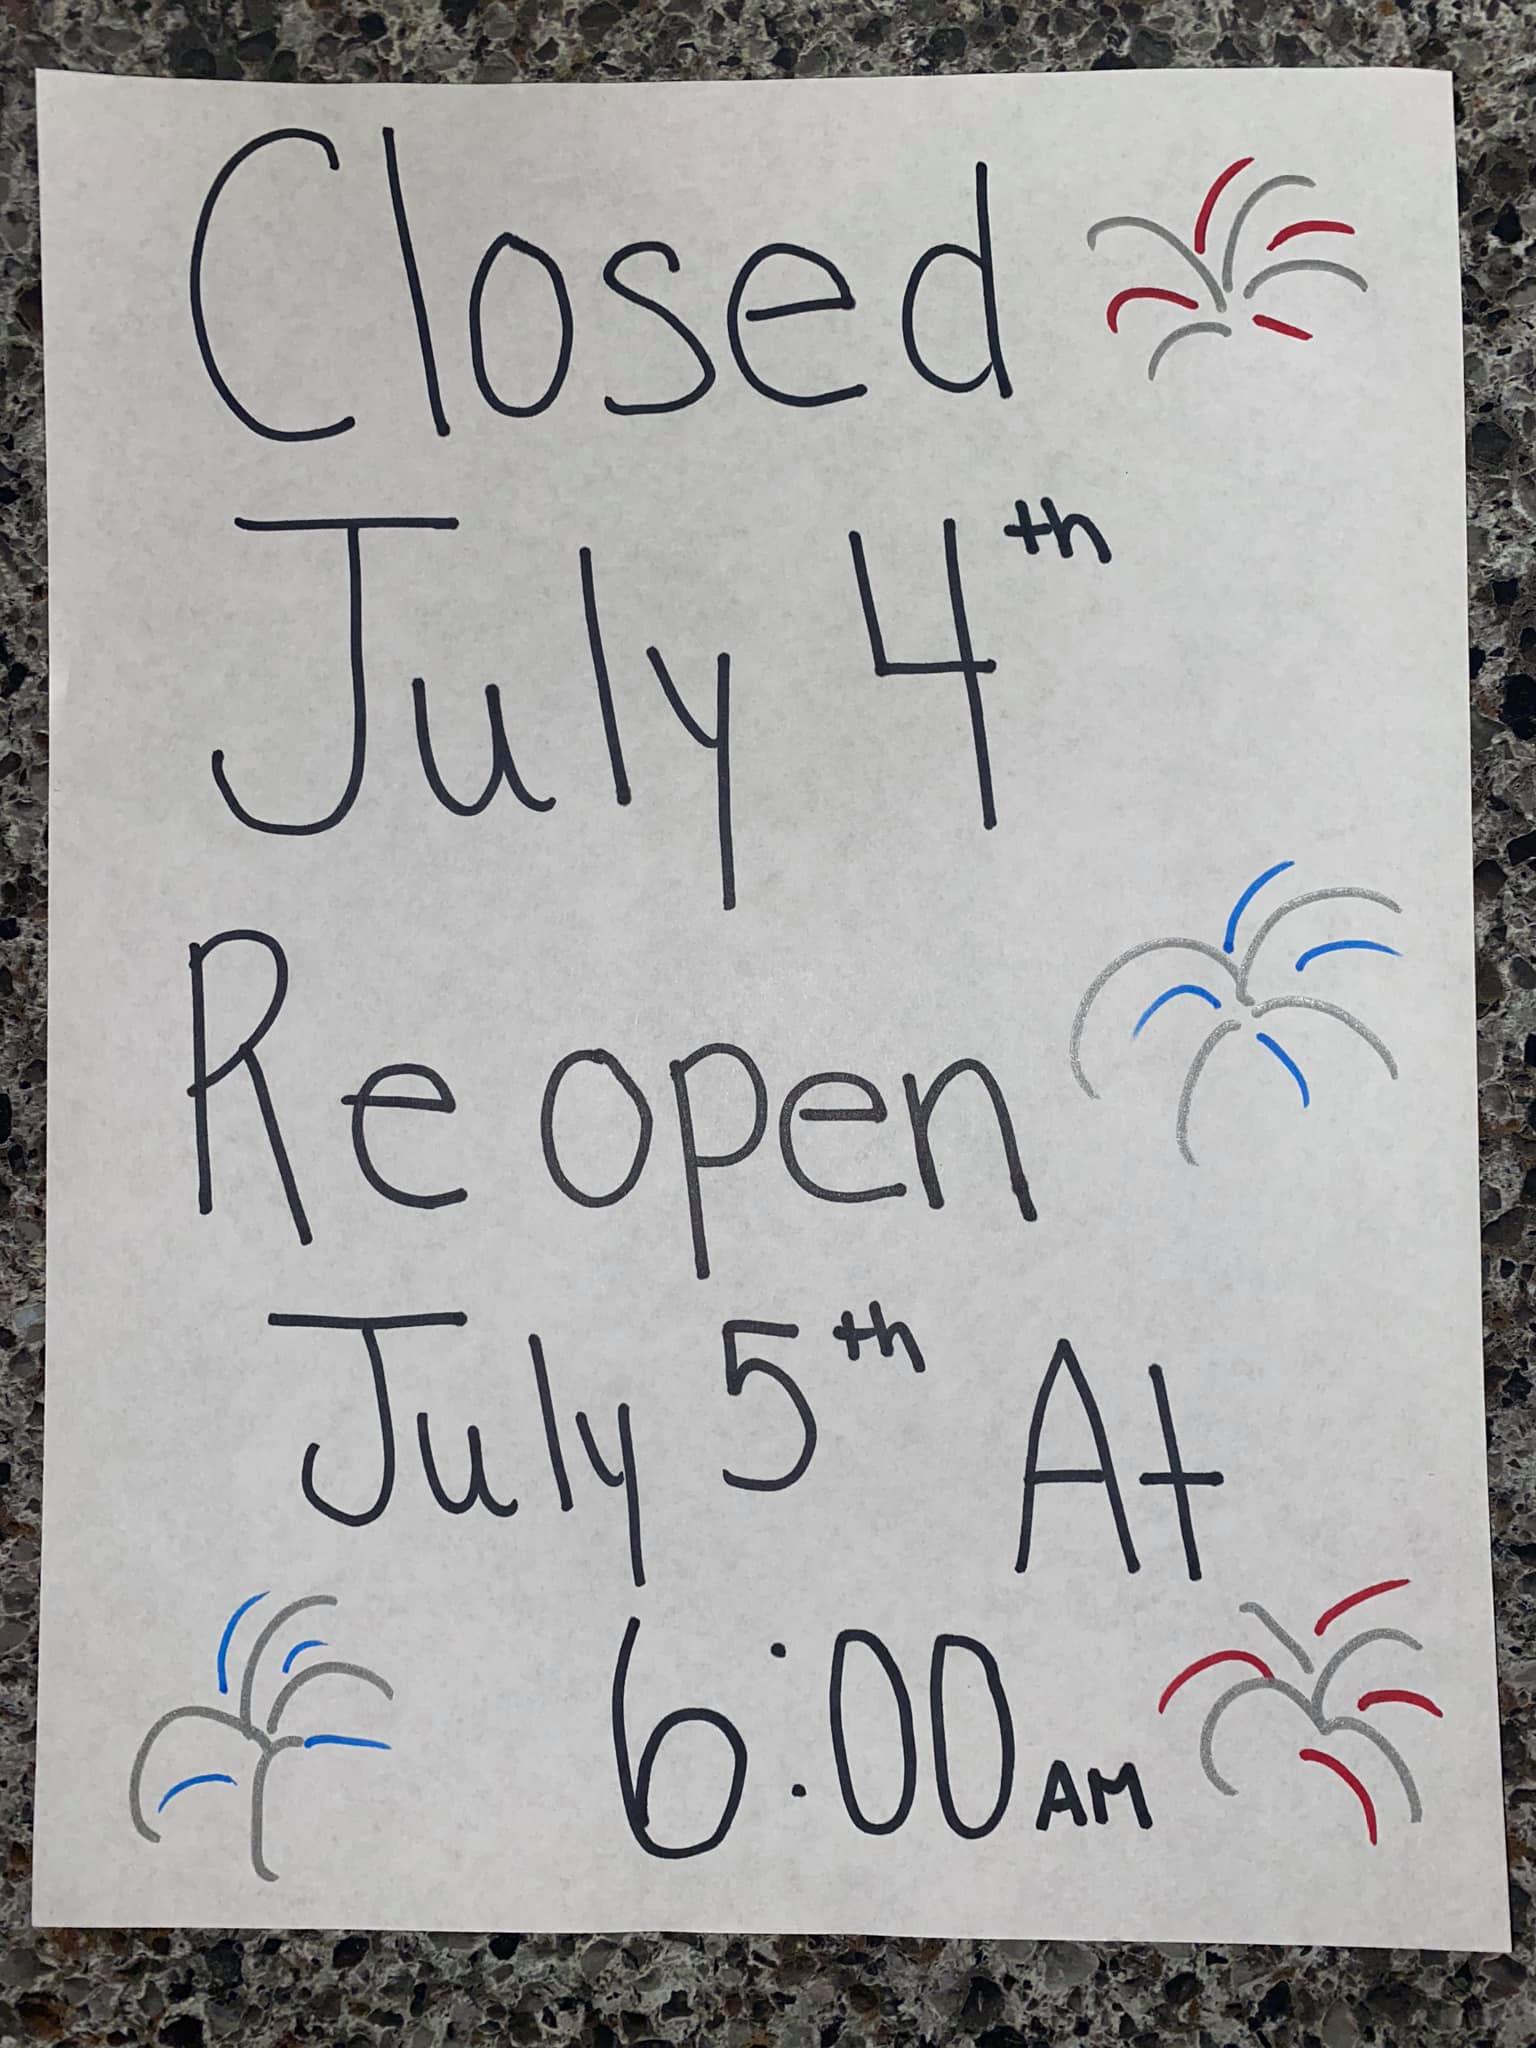 Closed
July 4th
Reopen
July 5th At
6:00 AM